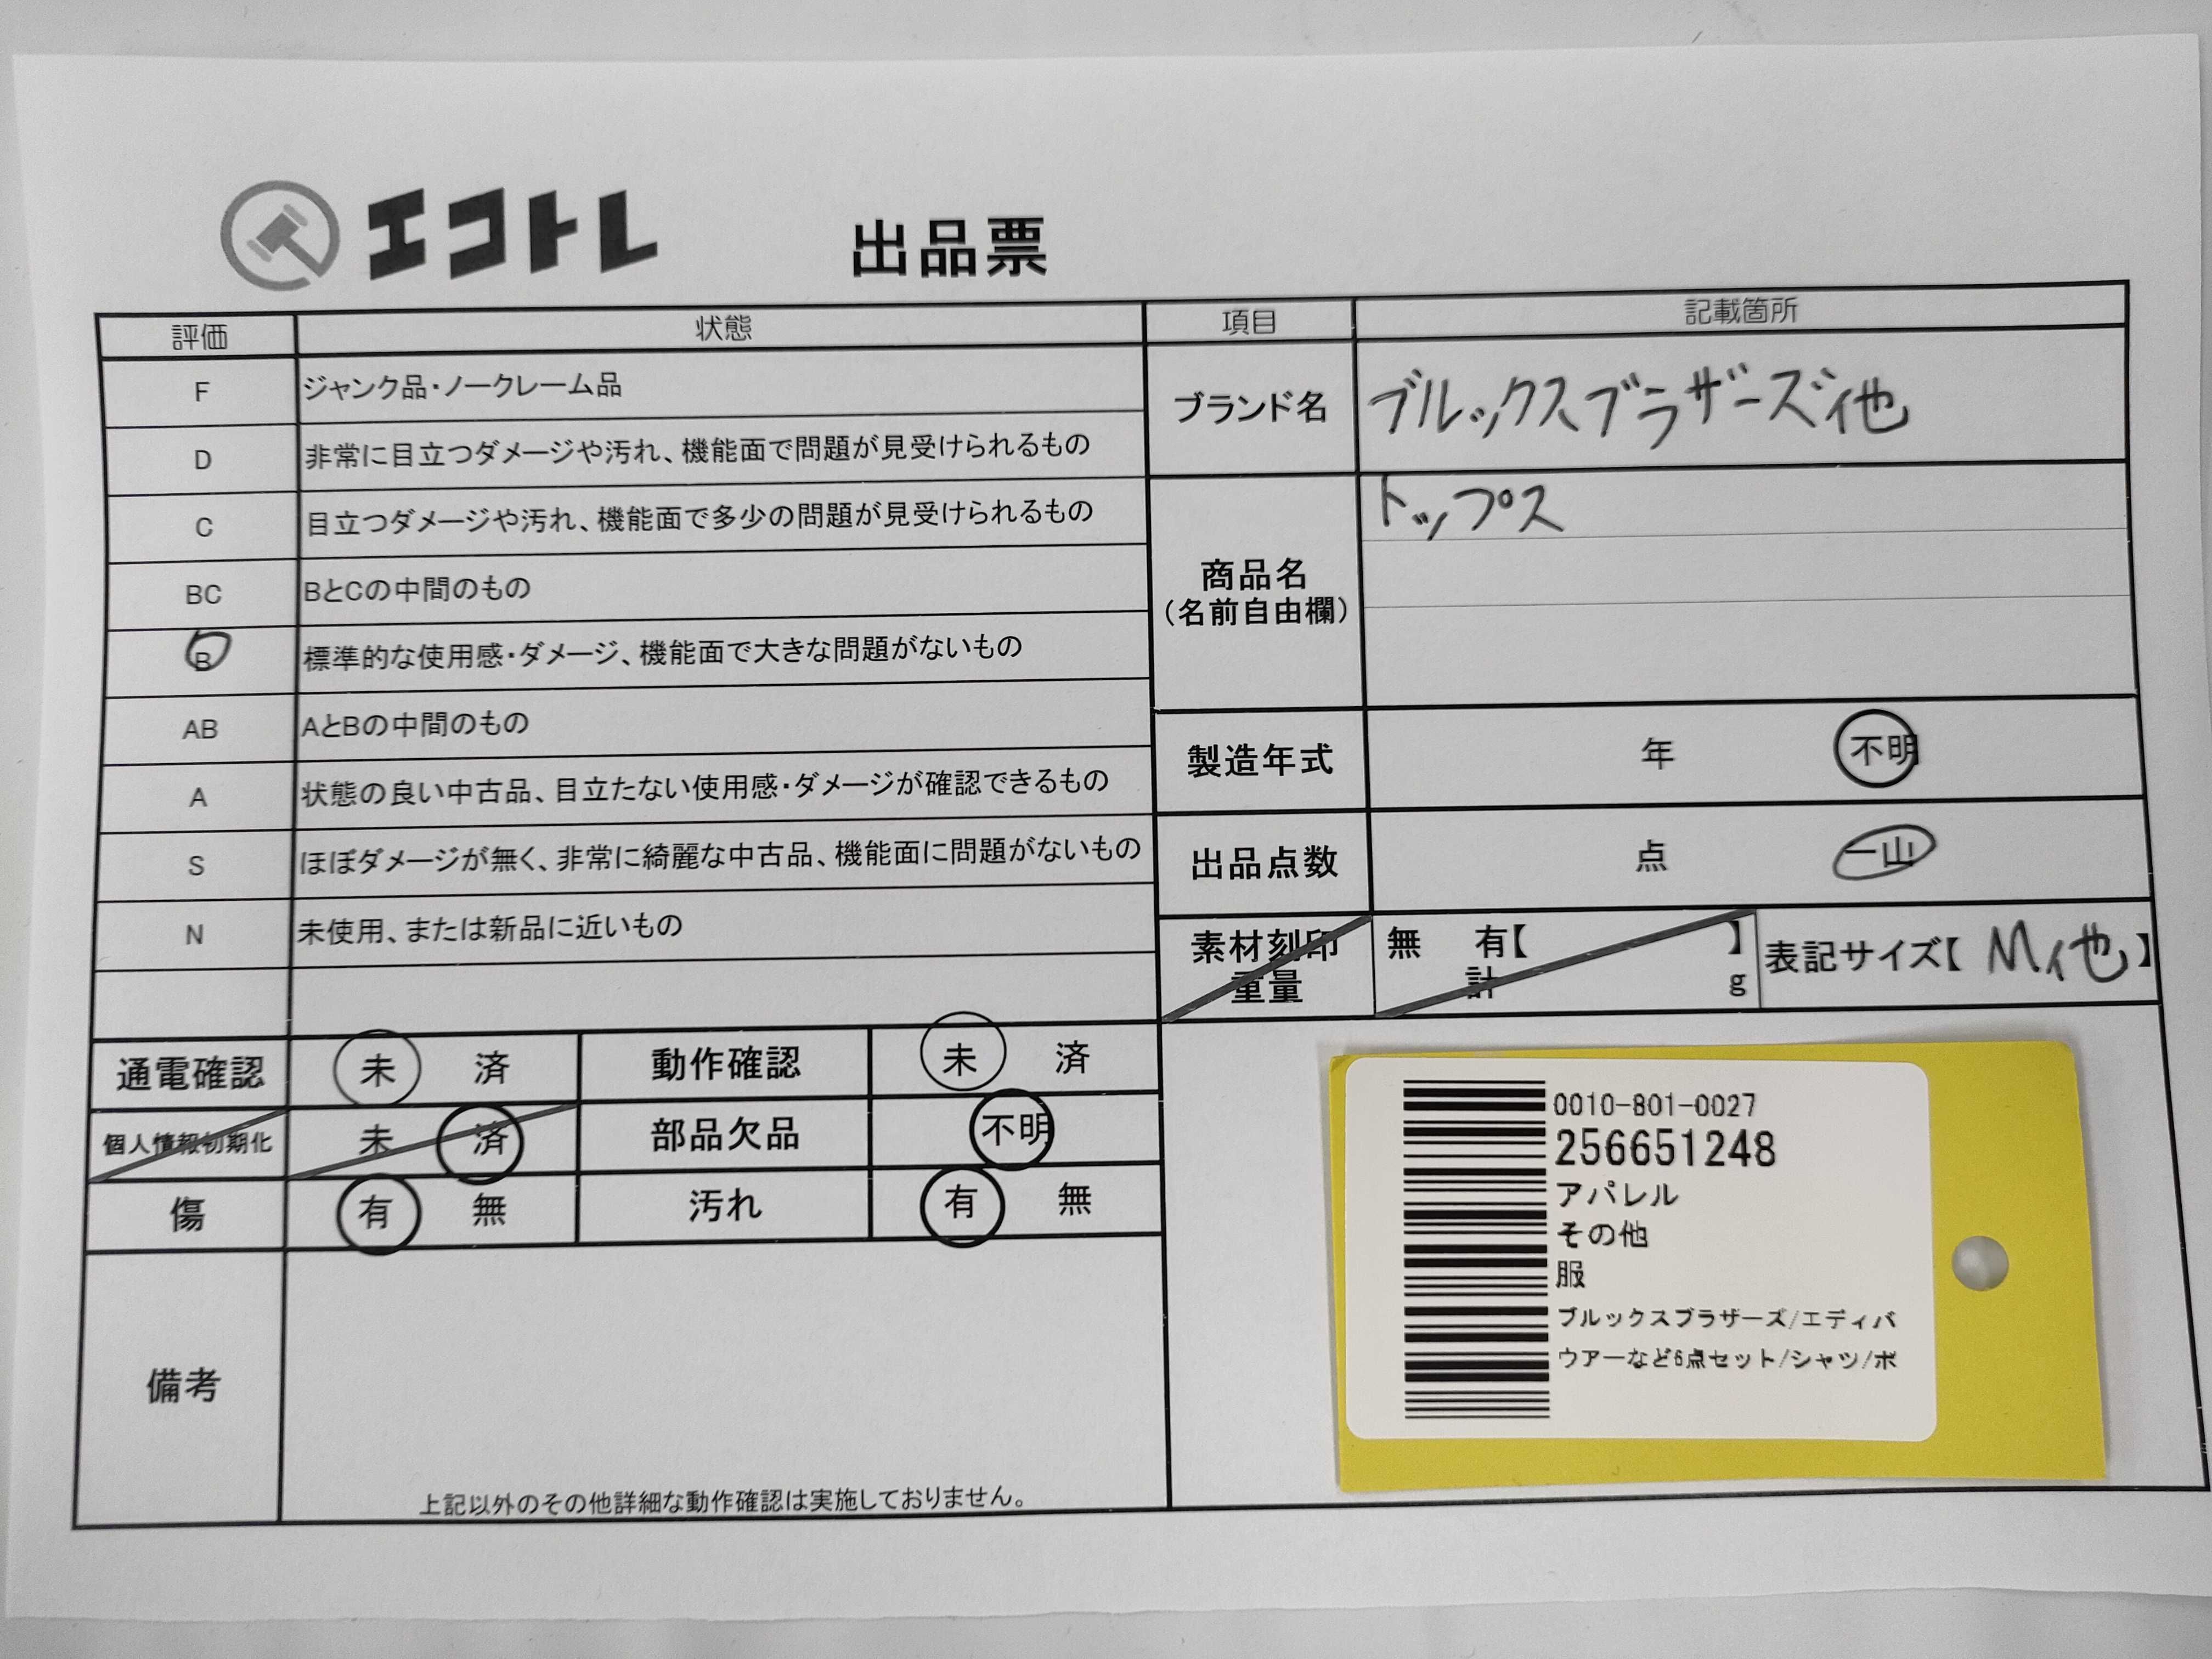 エコトレ
出品票
評価 状態
F ジャンク品・ノークレーム品
D 非常に目立つダメージや汚れ、機能面で問題が見受けられるもの
C 目立つダメージや汚れ、機能面で多少の問題が見受けられるもの
BC BとCの中間のもの
B 標準的な使用感・ダメージ、機能面で大きな問題がないもの
AB AとBの中間のもの
A 状態の良い中古品、目立たない使用感・ダメージが確認できるもの
S ほぼダメージが無く、非常に綺麗な中古品、機能面に問題がないもの
N 未使用、または新品に近いもの
通電確認 未 済 動作確認 未 済
個人情報初期化 未 済 部品欠品 不明
傷 有 無 汚れ 有 無
備考
上記以外のその他詳細な動作確認は実施しておりません。
項目 記載箇所
ブランド名 ブルックスブラザーズ他
商品名
(名前自由欄)
トップス
製造年式 年 不明
出品点数 点 一山
素材刻印 無 有【 】
重量 計 g
表記サイズ【 M他 】
0010-801-0027
256651248
アパレル
その他
服
ブルックスブラザーズ/エディバ
ウアーなど6点セット/シャツ/ポ